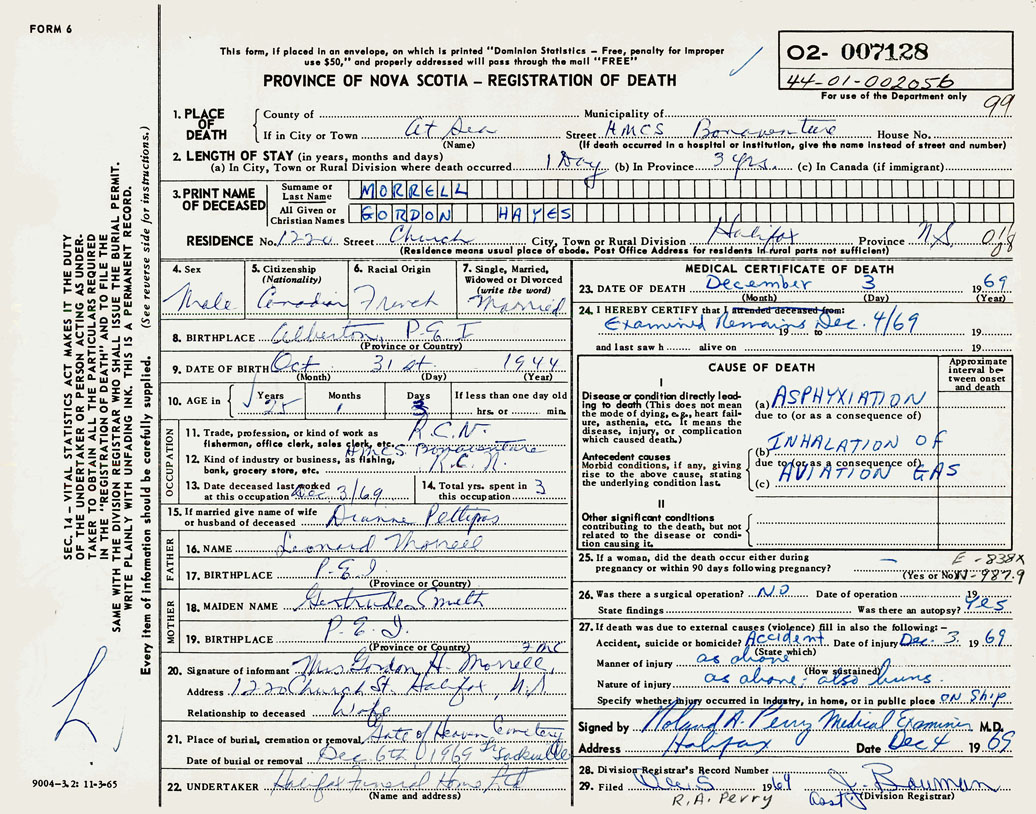 FORM 6
This form, if placed in an envelope, on which is printed "Dominion Statistics – Free, penalty for improper
use $50," and properly addressed will pass through the mail "FREE"
PROVINCE OF NOVA SCOTIA – REGISTRATION OF DEATH
02- 007128
44-01-002056
For use of the Department only
99
1. PLACE OF DEATH
County of
Municipality of
If in City or Town At Sea Street HMCS Bonaventure House No.
(Name) (If death occurred in a hospital or institution, give the name instead of street and number)
2. LENGTH OF STAY (in years, months and days)
(a) In City, Town or Rural Division where death occurred 1 Day (b) In Province 3 yrs. (c) In Canada (if immigrant)
3. PRINT NAME OF DECEASED
Surname or Last Name MORRELL
All Given or Christian Names GORDON HAYES
RESIDENCE No. 1220 Street Church City, Town or Rural Division Halifax Province N.S.
(Residence means usual place of abode. Post Office Address for residents in rural parts not sufficient)
4. Sex Male
5. Citizenship (Nationality) Canadian
6. Racial Origin French
7. Single, Married, Widowed or Divorced (write the word) Married
8. BIRTHPLACE Alberton, P.E.I
(Province or Country)
9. DATE OF BIRTH Oct 31st 1944
(Month) (Day) (Year)
10. AGE in Years 25 Months 1 Days 3 If less than one day old hrs. or min.
OCCUPATION
11. Trade, profession, or kind of work as R.C.N.
fishermen, office clerk, sales clerk, etc.
12. Kind of industry or business, as fishing, HMCS Bonaventure
bank, grocery store, etc. R.C.N.
13. Date deceased last worked at this occupation Dec 3/69
14. Total yrs. spent in this occupation 3
15. If married give name of wife or husband of deceased Dianne Pettipas
FATHER
16. NAME Leonard Morrell
17. BIRTHPLACE P.E.I.
(Province or Country)
MOTHER
18. MAIDEN NAME Gertrude Smith
19. BIRTHPLACE P.E.I.
(Province or Country)
20. Signature of informant Mrs. Gordon H. Morrell,
Address 1220 Church St. Halifax, N.S
Relationship to deceased Wife
21. Place of burial, cremation or removal Gate of Heaven Cemetery
Date of burial or removal Dec 6th 1969 Sackville
22. UNDERTAKER Halifax Funeral Home Ltd
(Name and address)
MEDICAL CERTIFICATE OF DEATH
23. DATE OF DEATH December 3 1969
(Month) (Day) (Year)
24. I HEREBY CERTIFY that I attended deceased from:
Examined Remains Dec. 4/69
19 to 19
and last saw h alive on 19
CAUSE OF DEATH
Approximate interval between onset and death
I
Disease or condition directly leading to death (This does not mean the mode of dying, e.g., heart failure, asthenia, etc. It means the disease, injury, or complication which caused death.)
(a) ASPHYXIATION
due to (or as a consequence of)
Antecedent causes
Morbid conditions, if any, giving rise to the above cause, stating the underlying condition last.
(b) INHALATION OF
due to (or as a consequence of)
(c) AVIATION GAS
II
Other significant conditions
contributing to the death, but not related to the disease or condition causing it.
25. If a woman, did the death occur either during
pregnancy or within 90 days following pregnancy? –
(Yes or No)
E - 838X
N-987.9
26. Was there a surgical operation? NO Date of operation 19
State findings Was there an autopsy? Yes
27. If death was due to external causes (violence) fill in also the following:–
Accident, suicide or homicide? Accident Date of injury Dec. 3 1969
(State which)
Manner of injury as above
(How sustained)
Nature of injury as above - also burns.
Specify whether injury occurred in industry, in home, or in public place ON Ship
Signed by Roland A. Perry Medical Examiner M.D.
Address Halifax Date Dec 4 1969
28. Division Registrar's Record Number
29. Filed Dec 5 1969 J. Bowman
R.A. PERRY Asst (Division Registrar)
SEC. 14 – VITAL STATISTICS ACT MAKES IT THE DUTY
OF THE UNDERTAKER OR PERSON ACTING AS UNDER-
TAKER TO OBTAIN ALL THE PARTICULARS REQUIRED
IN THE "REGISTRATION OF DEATH" AND TO FILE THE
SAME WITH THE DIVISION REGISTRAR WHO SHALL ISSUE THE BURIAL PERMIT.
WRITE PLAINLY WITH UNFADING INK. THIS IS A PERMANENT RECORD.
Every item of information should be carefully supplied. (See reverse side for instructions.)
9004–3.2: 11-3-65